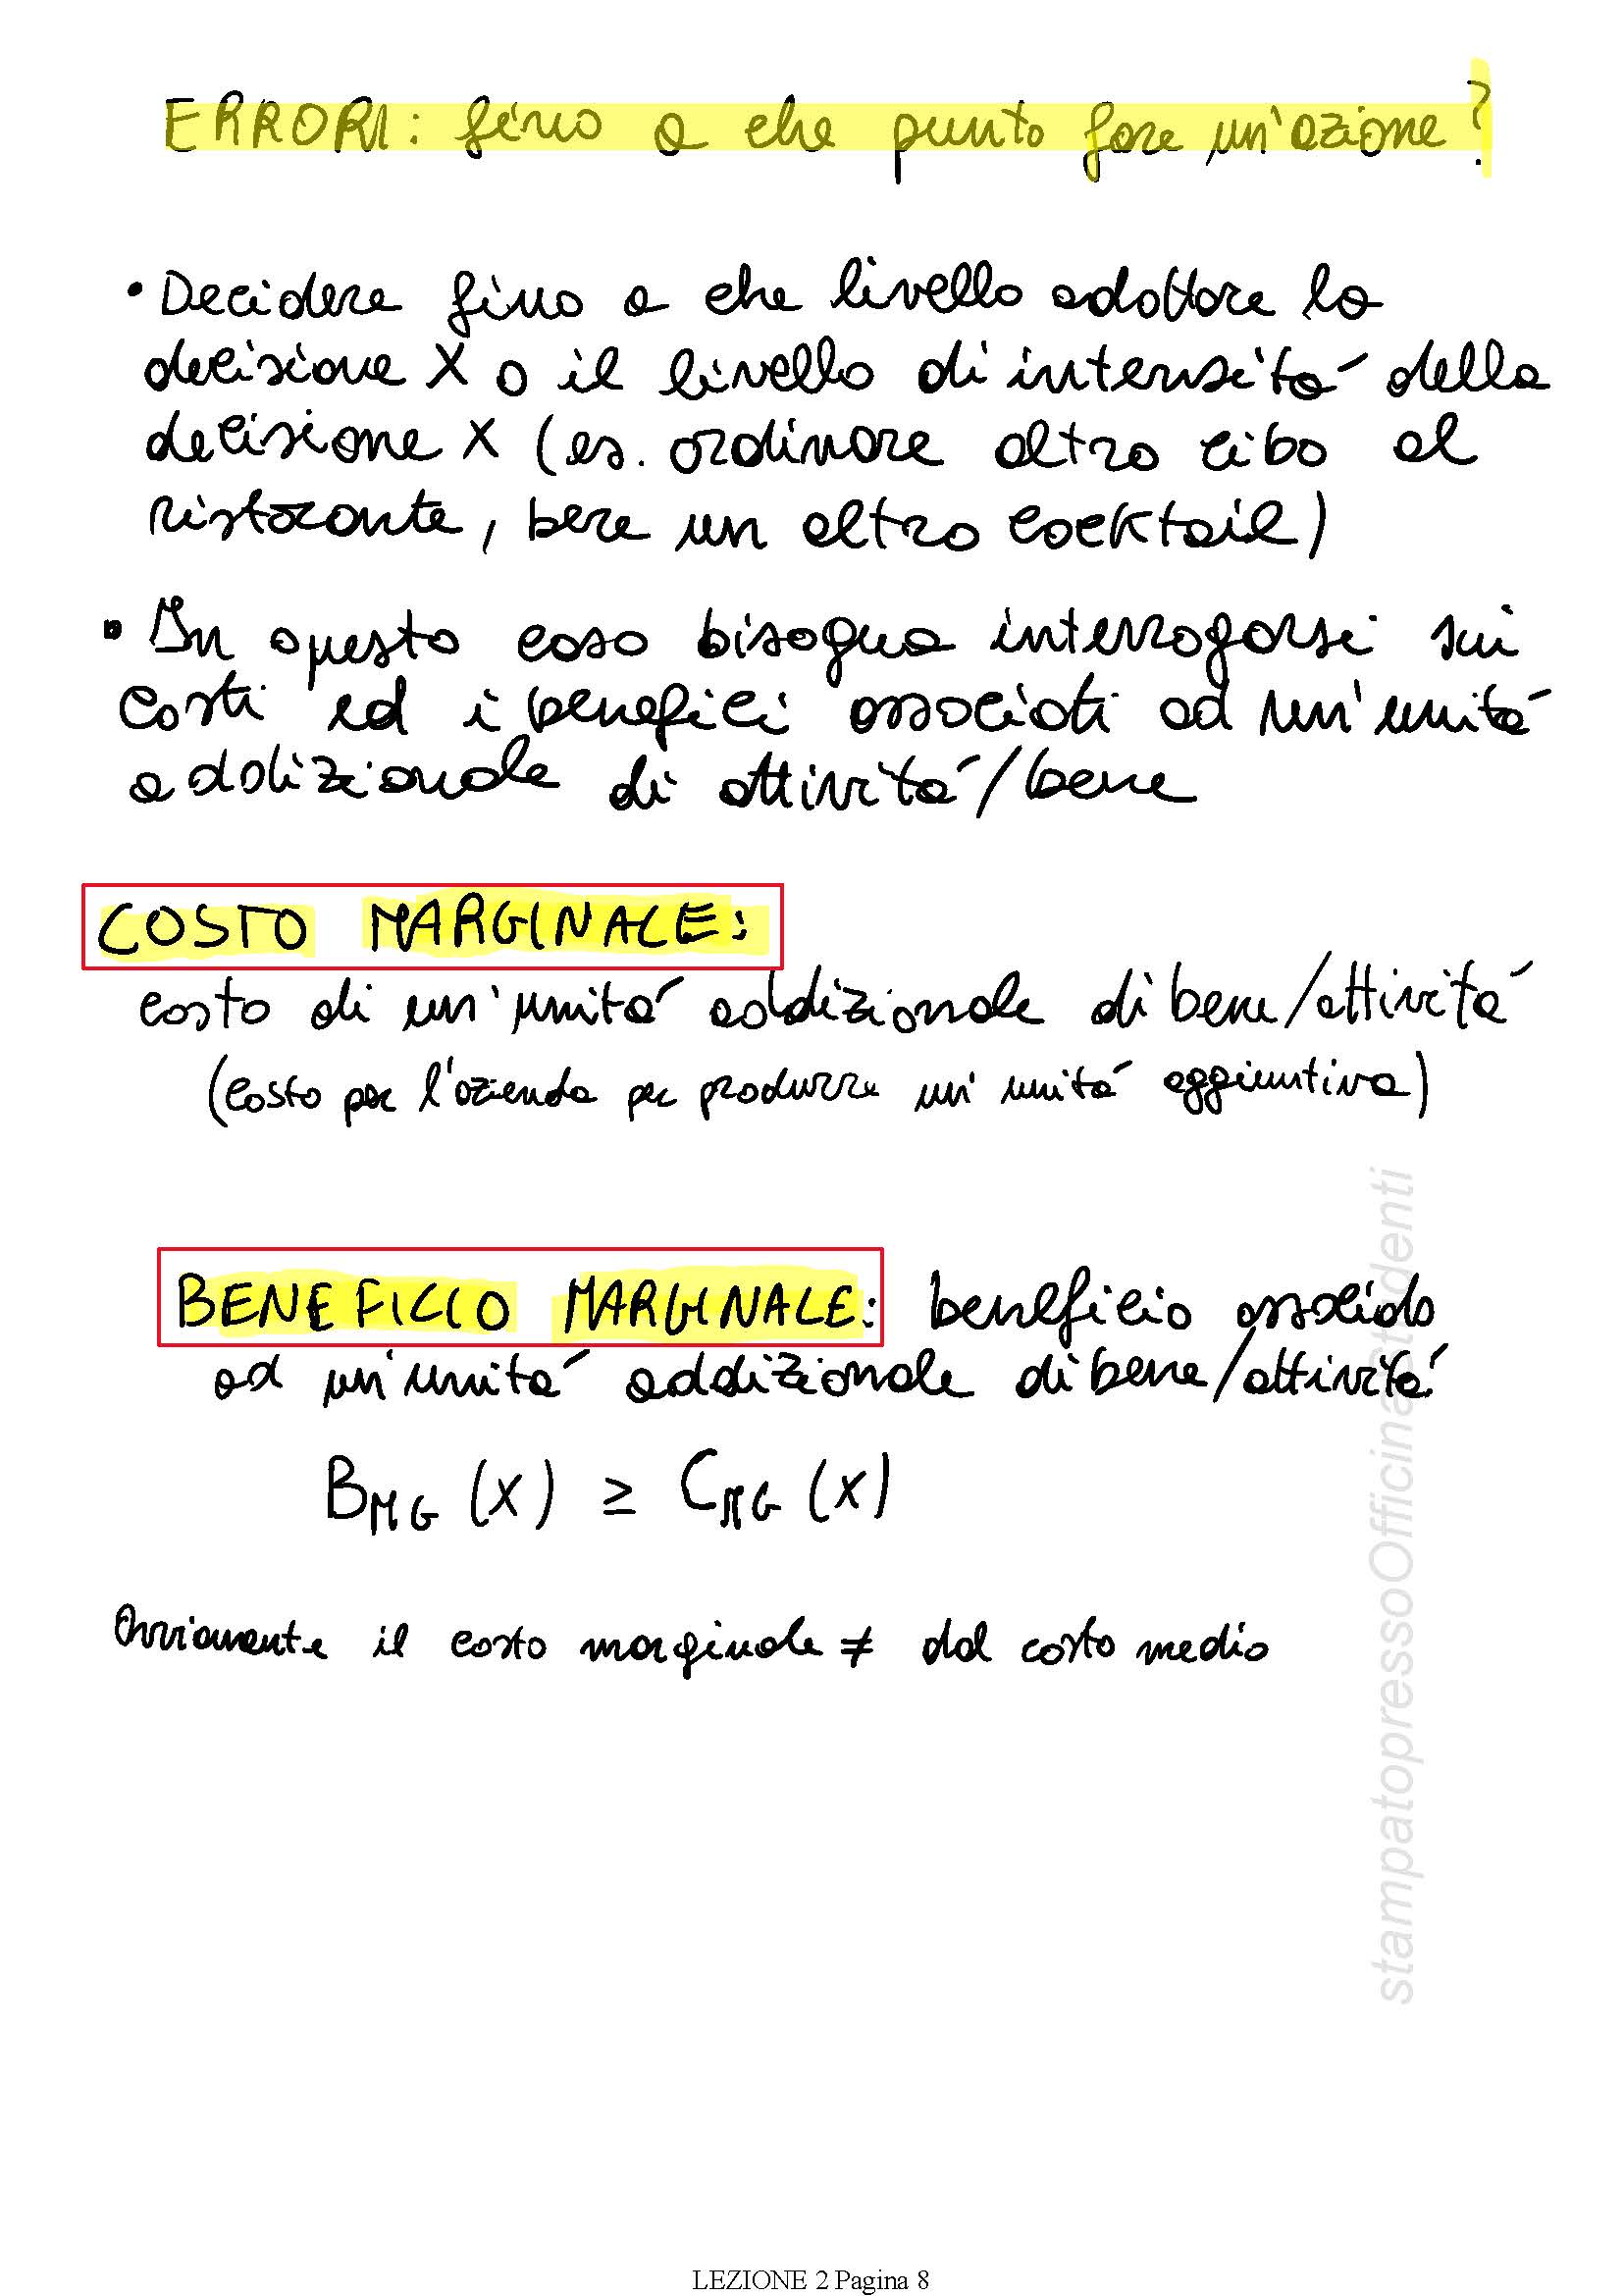 ERRORI: fino a che punto fare un'azione?
• Decidere fino a che livello adottare la
decisione X o il livello di intensità della
decisione X (es. ordinare altro cibo al
ristorante, bere un altro cocktail)
• In questo caso bisogna interrogarsi sui
costi ed i benefici associati ad un'unità
addizionale di attività/bene
COSTO MARGINALE:
costo di un'unità addizionale di bene/attività
(costo per l'azienda per produrre un'unità aggiuntiva)
BENEFICIO MARGINALE: beneficio associato
ad un'unità addizionale di bene/attività
BMG (X) ≥ CMG (X)
Ovviamente il costo marginale ≠ dal costo medio
stampatopressoOfficinaStudenti
LEZIONE 2 Pagina 8